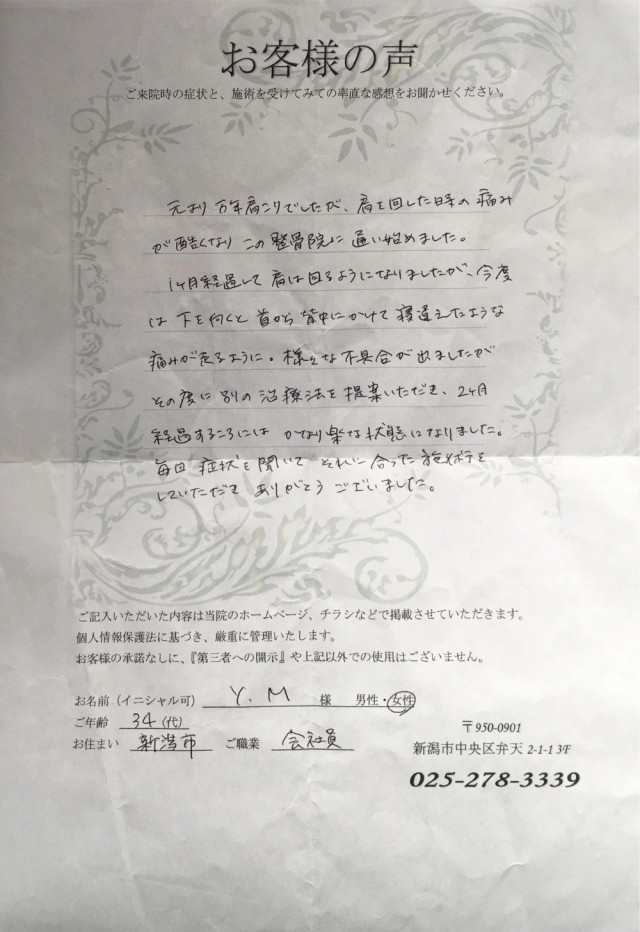 お客様の声
ご来院時の症状と、施術を受けてみての率直な感想をお聞かせください。
元より万年肩こりでしたが、肩を回した時の痛み
が酷くなりこの整骨院に通い始めました。
1ヶ月経過して肩は回るようになりましたが、今度
は下を向くと首から背中にかけて寝違えたような
痛みが走るように。様々な不具合が出ましたが
その度に別の治療法を提案いただき、2ヶ月
経過するころにはかなり楽な状態になりました。
毎回症状を聞いてそれに合った施術を
していただきありがとうございました。
ご記入いただいた内容は当院のホームページ、チラシなどで掲載させていただきます。
個人情報保護法に基づき、厳重に管理いたします。
お客様の承諾なしに、『第三者への開示』や上記以外での使用はございません。
お名前（イニシャル可） Y.M 様 男性・女性
ご年齢 34（代）
お住まい 新潟市 ご職業 会社員
〒950-0901
新潟市中央区弁天 2-1-1 3F
025-278-3339